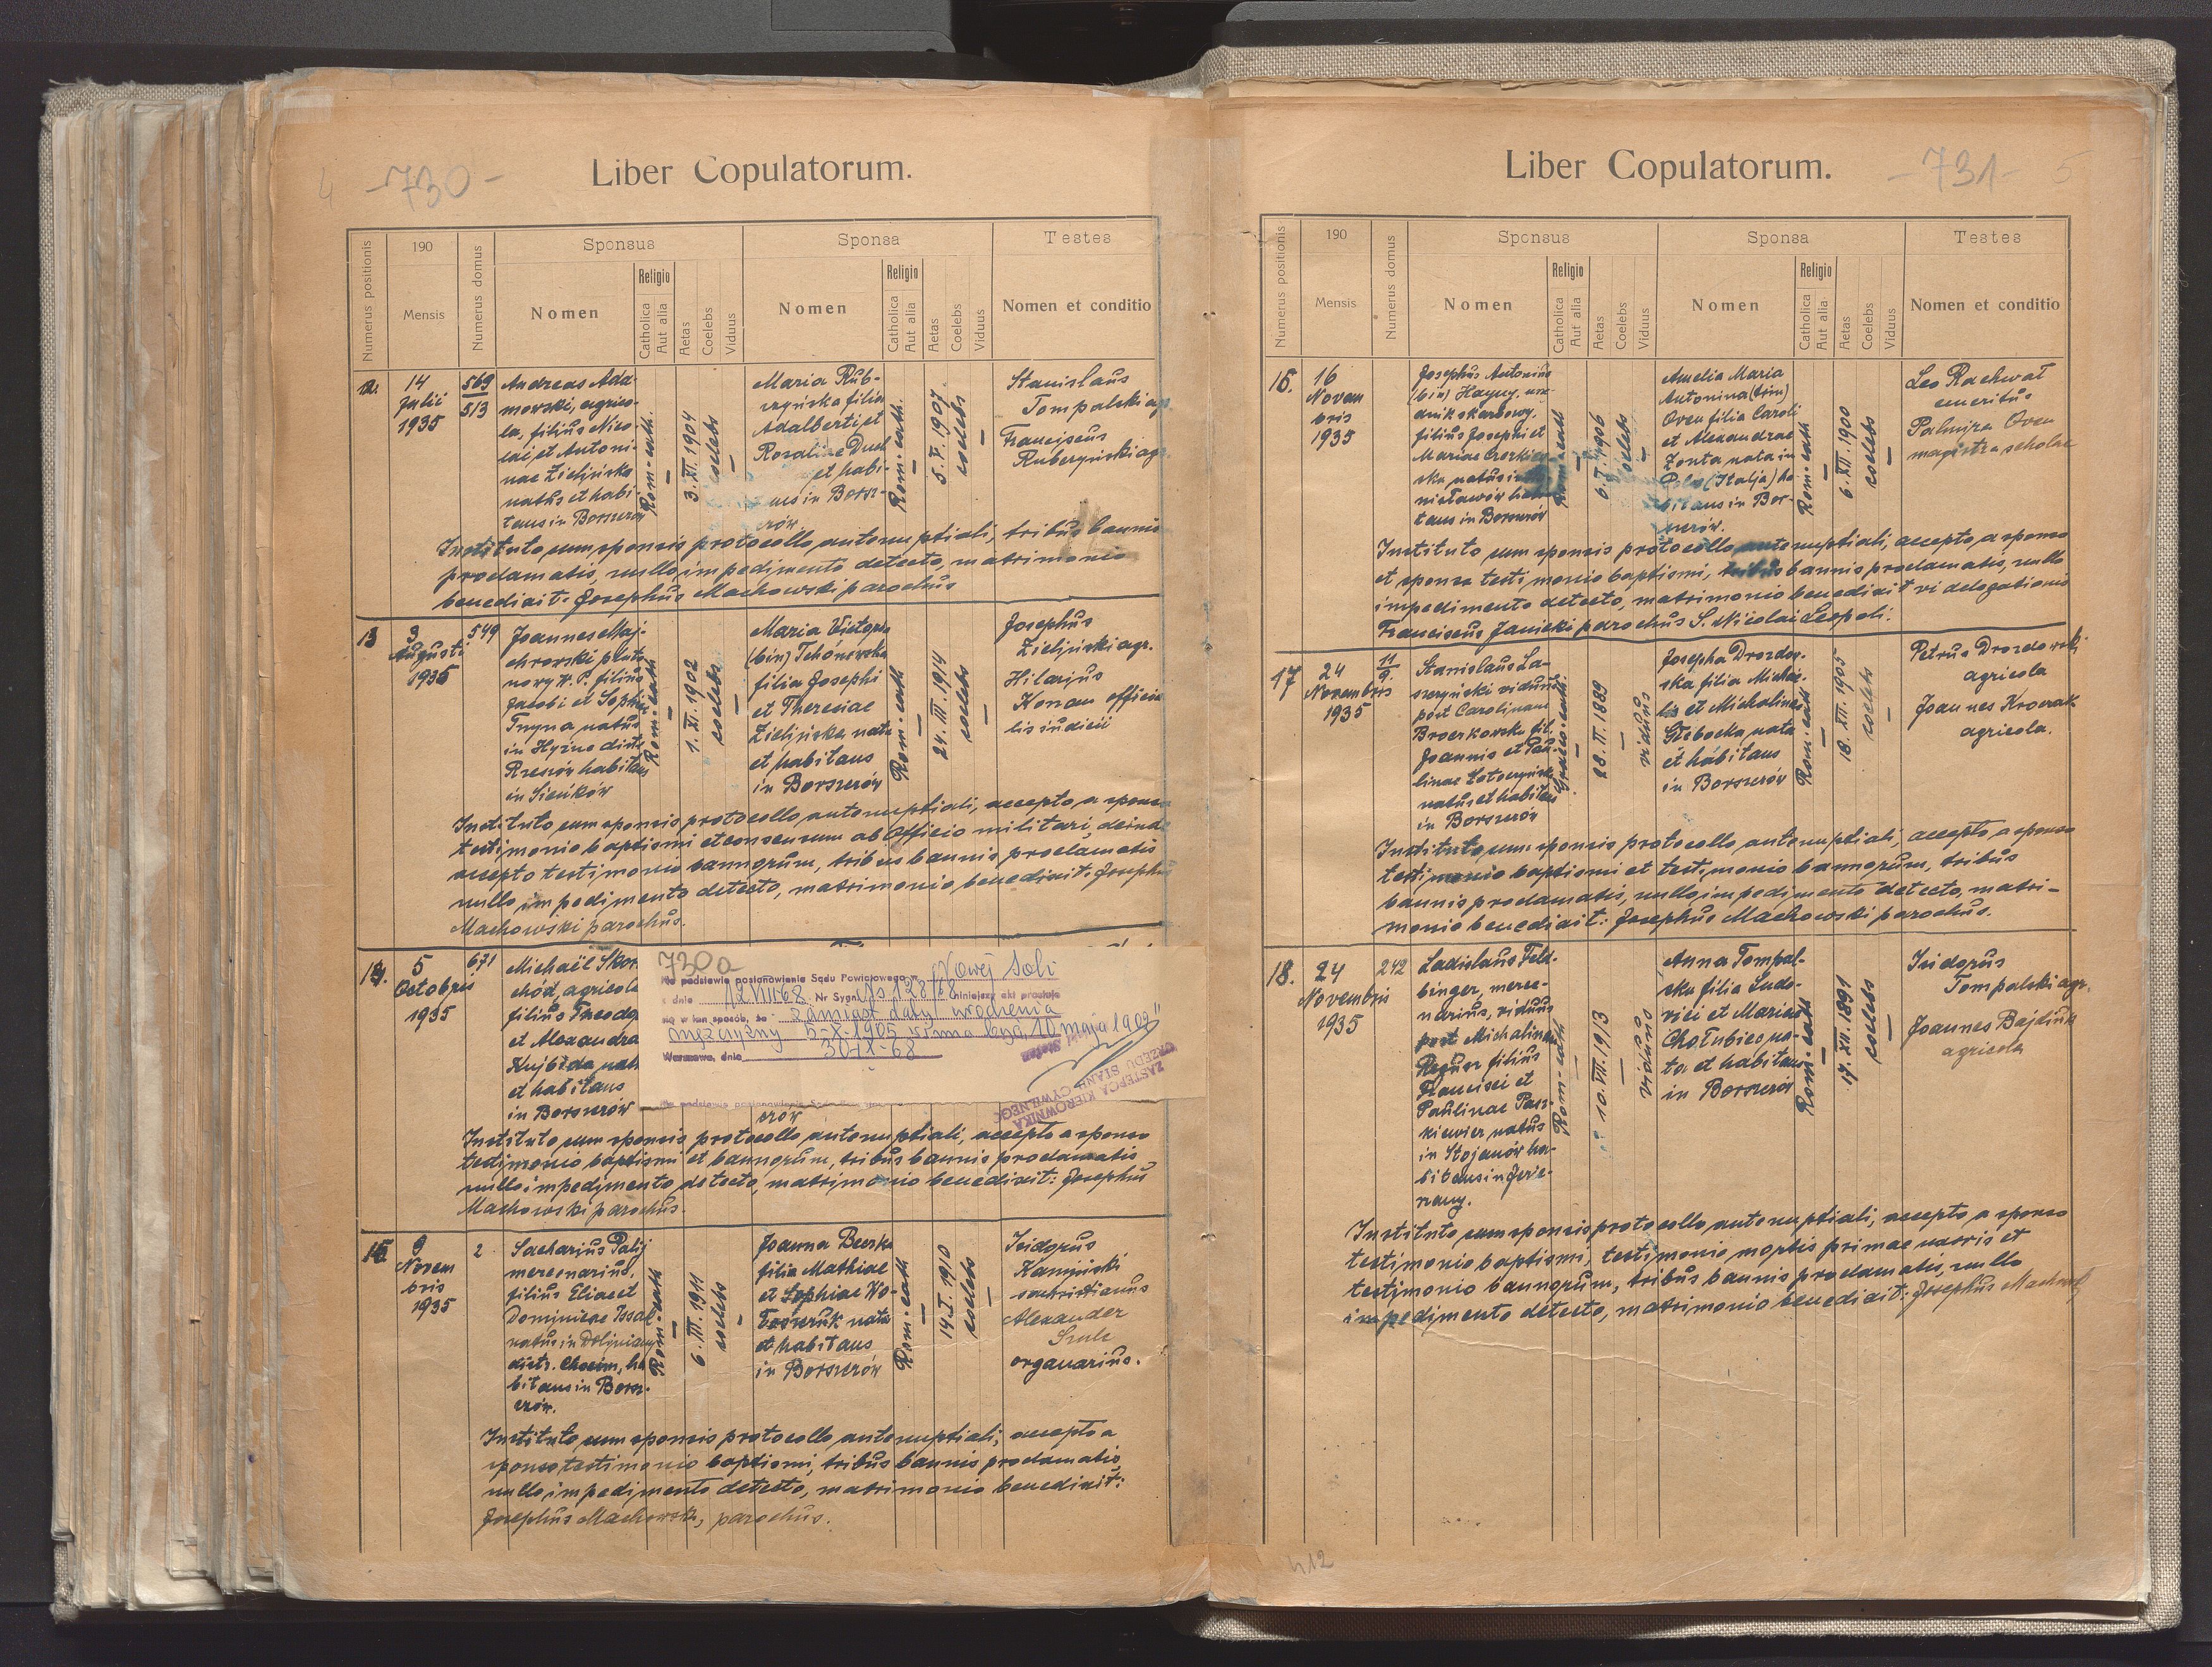 4 -730-
Liber Copulatorum.
Numerus positionis
190
Mensis
Numerus domus
Sponsus
Nomen
Religio
Catholica
Aut alia
Aetas
Coelebs
Viduus
Sponsa
Nomen
Religio
Catholica
Aut alia
Aetas
Coelebs
Viduus
Testes
Nomen et conditio
12.
14
Julii
1935
569
513
Andreas Ada-
mowski, agrico-
la, filius Nico-
lai et Antoni-
nae Zielińska
natus et habi
tans in Borszczów
Rom. cath.
3. XI. 1904
coelebs
Maria Rub-
czyńska filia
Adalberti et
Rosaliae Duch
et habi-
ans in Borsz-
czów
Rom. cath.
5. V. 1907.
coelebs
Stanislaus
Tompalski agr
Franciscus
Ruberzyński agr.
Instituto cum sponsis protocollo antenuptiali, tribus bannis
proclamatis, nullo impedimento detecto, matrimonio
benedixit. Josephus Machowski parochus
13
3
Augusti
1935
549
Joannes Maj-
chrowski pluto
nowy W.P. filius
Jacobi et Sophiae
Tryna natus
in Hyżne distr.
Rzeszów habitans
in Sieńków
Rom. cath
1. XI. 1902
coelebs
Maria Victoria
(bin) Tchorzewska
filia Josephi
et Theresiae
Zielińska nata
et habitans
in Borszczów
Rom. cath
24. III. 1914
coelebs
Josephus
Zieliński agr.
Hilarius
Konan officia
lis iudicii
Instituto cum sponsis protocollo antenuptiali, accepto a sponso
testimonio baptismi et consensum ab Officio militari, deinde
accepto testimonio bannorum, tribus bannis proclamatis
nullo impedimento detecto, matrimonio benedixit. Josephus
Machowski parochus.
14.
5
Octobris
1935
671
Michaël Skor
chód, agricola
filius Theodo
et Alexandra
Kujbida nat
et habitans
in Borszczów
730a
Na podstawie postanowienia Sądu Powiatowego w Nowej Soli
z dnia 12.VIII.68 Nr Sygn. Ns 128/68 niniejszy akt prostuje
się w ten sposób, że - zamiast daty urodzenia
mężczyzny 5-X-1905 winno być „10 maja 1903"
Warszawa, dnia 30-IX-68
ZASTĘPCA KIEROWNIKA
URZĘDU STANU CYWILNEGO
czów
Instituto cum sponsis protocollo antenuptiali, accepto a sponso
testimonio baptismi et bannorum, tribus bannis proclamatis
nullo impedimento detecto, matrimonio benedixit: Josephus
Machowski parochus.
15.
9
Novem
bris
1935
2
Sacharius Palij
mercenarius,
filius Eliae et
Dominicae Issak
natus in Doliniany
distr. Chocim, ha
bitans in Borsz-
czów.
Rom. cath
6. III. 1911
coelebs
Joanna Berska
filia Mathiae
et Sophiae Wo-
Toszczuk nata
et habitans
in Borszczów
Rom. cath
14. I. 1910
coelebs
Isidorus
Kamiński
sacristianus
Alexander
Szulc
organarius.
Instituto cum sponsis protocollo antenuptiali, accepto a
sponso testimonio baptismi, tribus bannis proclamatis,
nullo impedimento detecto, matrimonio benedixit:
Josephus Machowski, parochus.
Liber Copulatorum.
-731- 5
Numerus positionis
190
Mensis
Numerus domus
Sponsus
Nomen
Religio
Catholica
Aut alia
Aetas
Coelebs
Viduus
Sponsa
Nomen
Religio
Catholica
Aut alia
Aetas
Coelebs
Viduus
Testes
Nomen et conditio
16.
16
Novem
bris
1935
Josephus Antonius
(bin) Hajny, urz-
dnik skarbowy.
filius Josephi et
Mariae
ska natus in
nisławów habi
tans in Borszczów
Rom. cath
6. I. 1906
coelebs
Amelia Maria
Antonina (trin)
Oven filia Caroli
et Alexandrae
Zonta nata in
Pola (Italja) ha
bitans in Bor-
szczów.
Rom. cath
6. XII. 1900
coelebs
Leo Rachwał
emeritus
Palmira Oven
magistra scholae
Instituto cum sponsis protocollo antenuptiali, accepto a sponso
et sponsa testimonio baptismi, tribus bannis proclamatis, nullo
impedimento detecto, matrimonio benedixit vi delegationis
Franciscus Janicki parochus S. Nicolai Leopoli.
17
24
Novembris
1935
11
9
Stanislaus La-
szczyński viduus
post Carolinam
Broczkowska fil.
Joannis et Pau-
linae Łotoczyńska
natus et habitans
in Borszczów
Graeco cath.
28. II. 1889
viduus
Josepha Drozdow-
ska filia Michae-
lis et Michalinae
Głębocka nata
et habitans
in Borszczów
Rom. cath
18. XII. 1905
coelebs
Petrus Drozdowski
agricola
Joannes Krowiak
agricola.
Instituto cum sponsis protocollo antenuptiali, accepto a sponso
testimonio baptismi et testimonio bannorum, tribus
bannis proclamatis, nullo impedimento detecto, matri-
monio benedixit: Josephus Machowski parochus.
18.
24
Novembris
1935
242
Ladislaus Feld-
binger, merce-
narius, viduus
post Michalinam
filius
Francisci et
Paulinae Pasz-
kiewicz natus
in Stojanów ha-
bitans in Jezie-
rzany.
Rom. cath
10. VII. 1913
viduus
Anna Tompal-
ska filia Ludo-
vici et Mariae
Chołubiec na-
ta et habitans
in Borszczów
Rom. cath
17. XII. 1891
coelebs
Isidorus
Tompalski agr.
Joannes Bajdiuk
agricola
Instituto cum sponsis protocollo antenuptiali, accepto a sponso
testimonio baptismi, testimonio mortis primae uxoris et
testimonio bannorum, tribus bannis proclamatis, nullo
impedimento detecto, matrimonio benedixit: Josephus Machowski
412